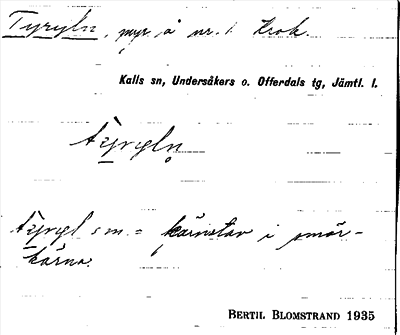 Tyryln, myr å nr. 1 Krok.
Kalls sn, Undersåkers o. Offerdals tg, Jämtl. l.
tỳryln̥
tỳryl s m. = kärnstav i smör-
kärna.
BERTIL BLOMSTRAND 1935